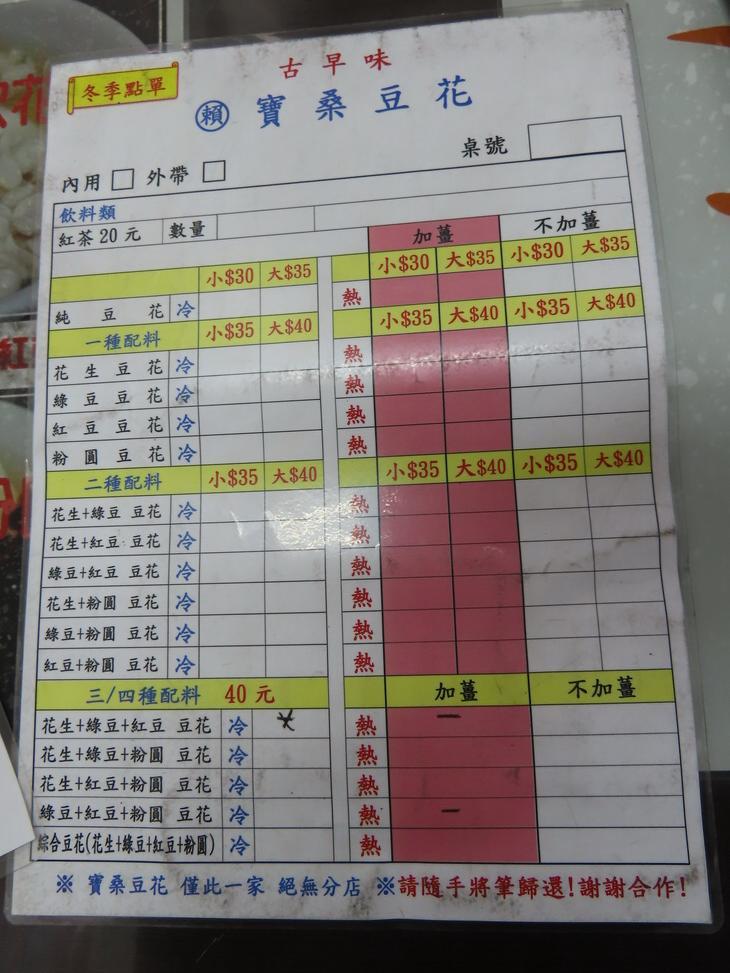 冬季點單
古早味
賴 寶桑豆花
桌號
內用 □ 外帶 □
飲料類
紅茶20元 數量
加薑 不加薑
小$30 大$35 小$30 大$35 小$30 大$35
純豆花 冷 熱
一種配料 小$35 大$40 小$35 大$40 小$35 大$40
花生豆花 冷 熱
綠豆豆花 冷 熱
紅豆豆花 冷 熱
粉圓豆花 冷 熱
二種配料 小$35 大$40 小$35 大$40 小$35 大$40
花生+綠豆 豆花 冷 熱
花生+紅豆 豆花 冷 熱
綠豆+紅豆 豆花 冷 熱
花生+粉圓 豆花 冷 熱
綠豆+粉圓 豆花 冷 熱
紅豆+粉圓 豆花 冷 熱
三/四種配料 40元 加薑 不加薑
花生+綠豆+紅豆 豆花 冷 熱 一
花生+綠豆+粉圓 豆花 冷 熱
花生+紅豆+粉圓 豆花 冷 熱
綠豆+紅豆+粉圓 豆花 冷 熱 一
綜合豆花(花生+綠豆+紅豆+粉圓) 冷 熱
※ 寶桑豆花 僅此一家 絕無分店 ※請隨手將筆歸還!謝謝合作!